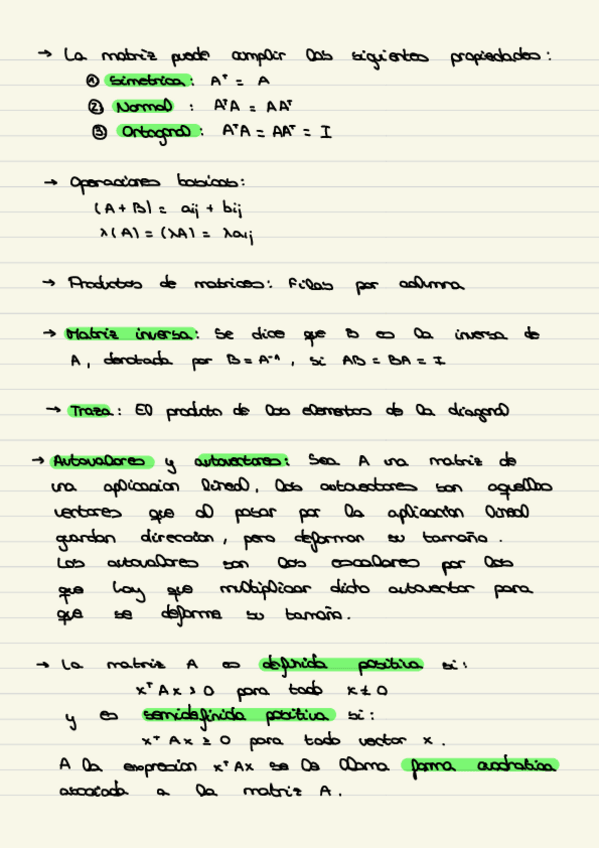 → La matriz puede cumplir las siguientes propiedades:
① Simetrica: Aᵀ = A
② Normal : AᵀA = AAᵀ
③ Ortogonal: AᵀA = AAᵀ = I
→ Operaciones basicas:
(A + B) = aij + bij
λ(A) = (λA) = λaij
→ Productos de matrices: Filas por columna
→ Matriz inversa: Se dice que B es la inversa de
A, denotada por B = A⁻¹, si AB = BA = I
→ Traza: El producto de los elementos de la diagonal
→ Autovalores y autovectores: Sea A una matriz de
una aplicacion lineal, los autovectores son aquellos
vectores que al pasar por la aplicacion lineal
guardan direccion, pero deforman su tamaño.
Los autovalores son los escalares por los
que hay que multiplicar dicho autovector para
que se deforme su tamaño.
→ La matriz A es definida positiva si:
xᵀAx > 0 para todo x ≠ 0
y es semidefinida positiva si:
xᵀAx ≥ 0 para todo vector x.
A la expresion xᵀAx se le llama forma cuadratica
asociada a la matriz A.